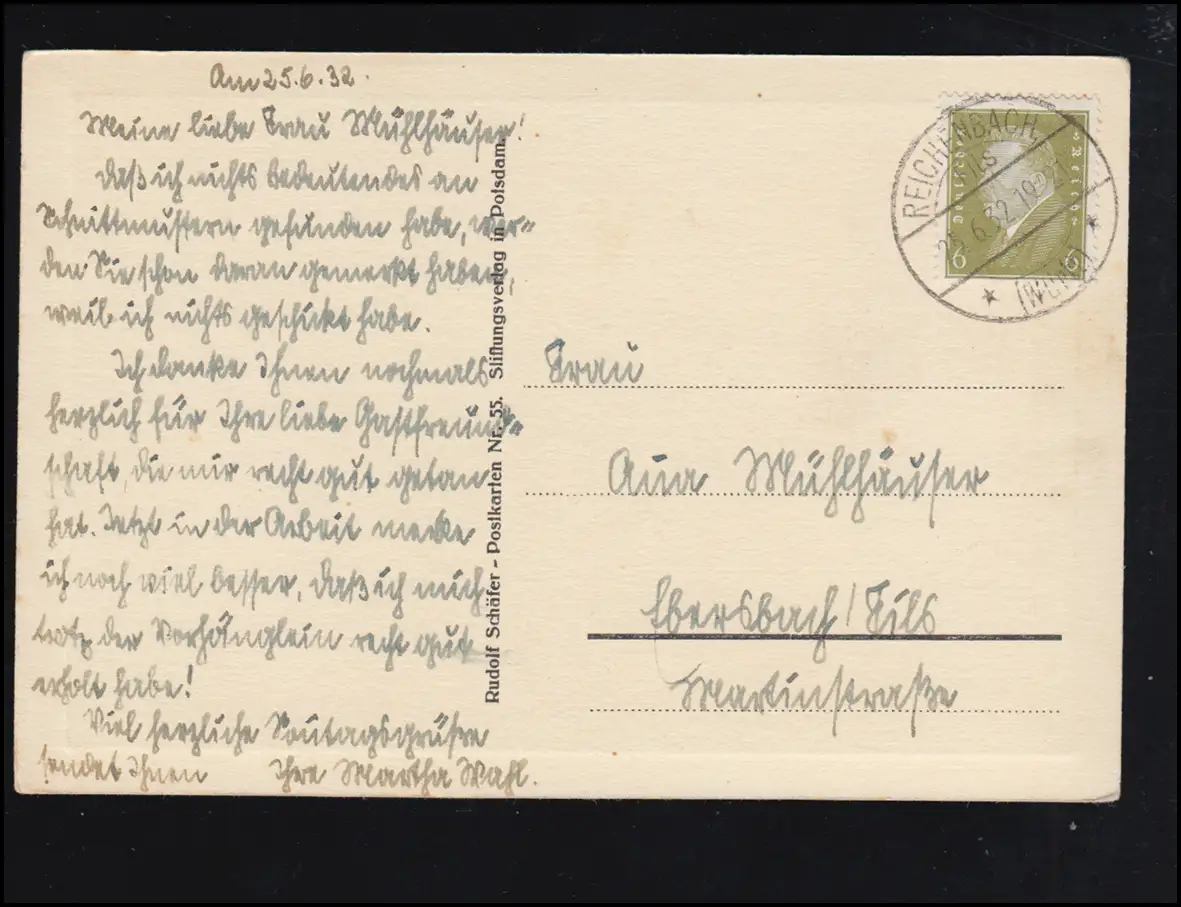 Am 25.6.32.
Meine liebe Frau Mühlhäuser!
Daß ich nichts bedeutendes an
Schnittmustern gefunden habe, wer-
den Sie schon daran gemerkt haben,
weil ich nichts geschickt habe.
Ich danke Ihnen nochmals
herzlich für Ihre liebe Gastfreund-
schaft, die mir recht gut getan
hat. Jetzt in der Arbeit merke
ich noch viel besser, daß ich mich
trotz der Vorhänglein recht gut
erholt habe!
Viel herzliche Sonntagsgrüße
sendet Ihnen Ihre Martha Wahl.
Rudolf Schäfer - Postkarten Nr. 55. Stiftungsverlag in Potsdam.
REICHENBACH, FILS
25.6.32.19
(WÜRTT)
Deutsches Reich
6 6
Frau
Anna Mühlhäuser
Ebersbach/Fils
Martinstraße